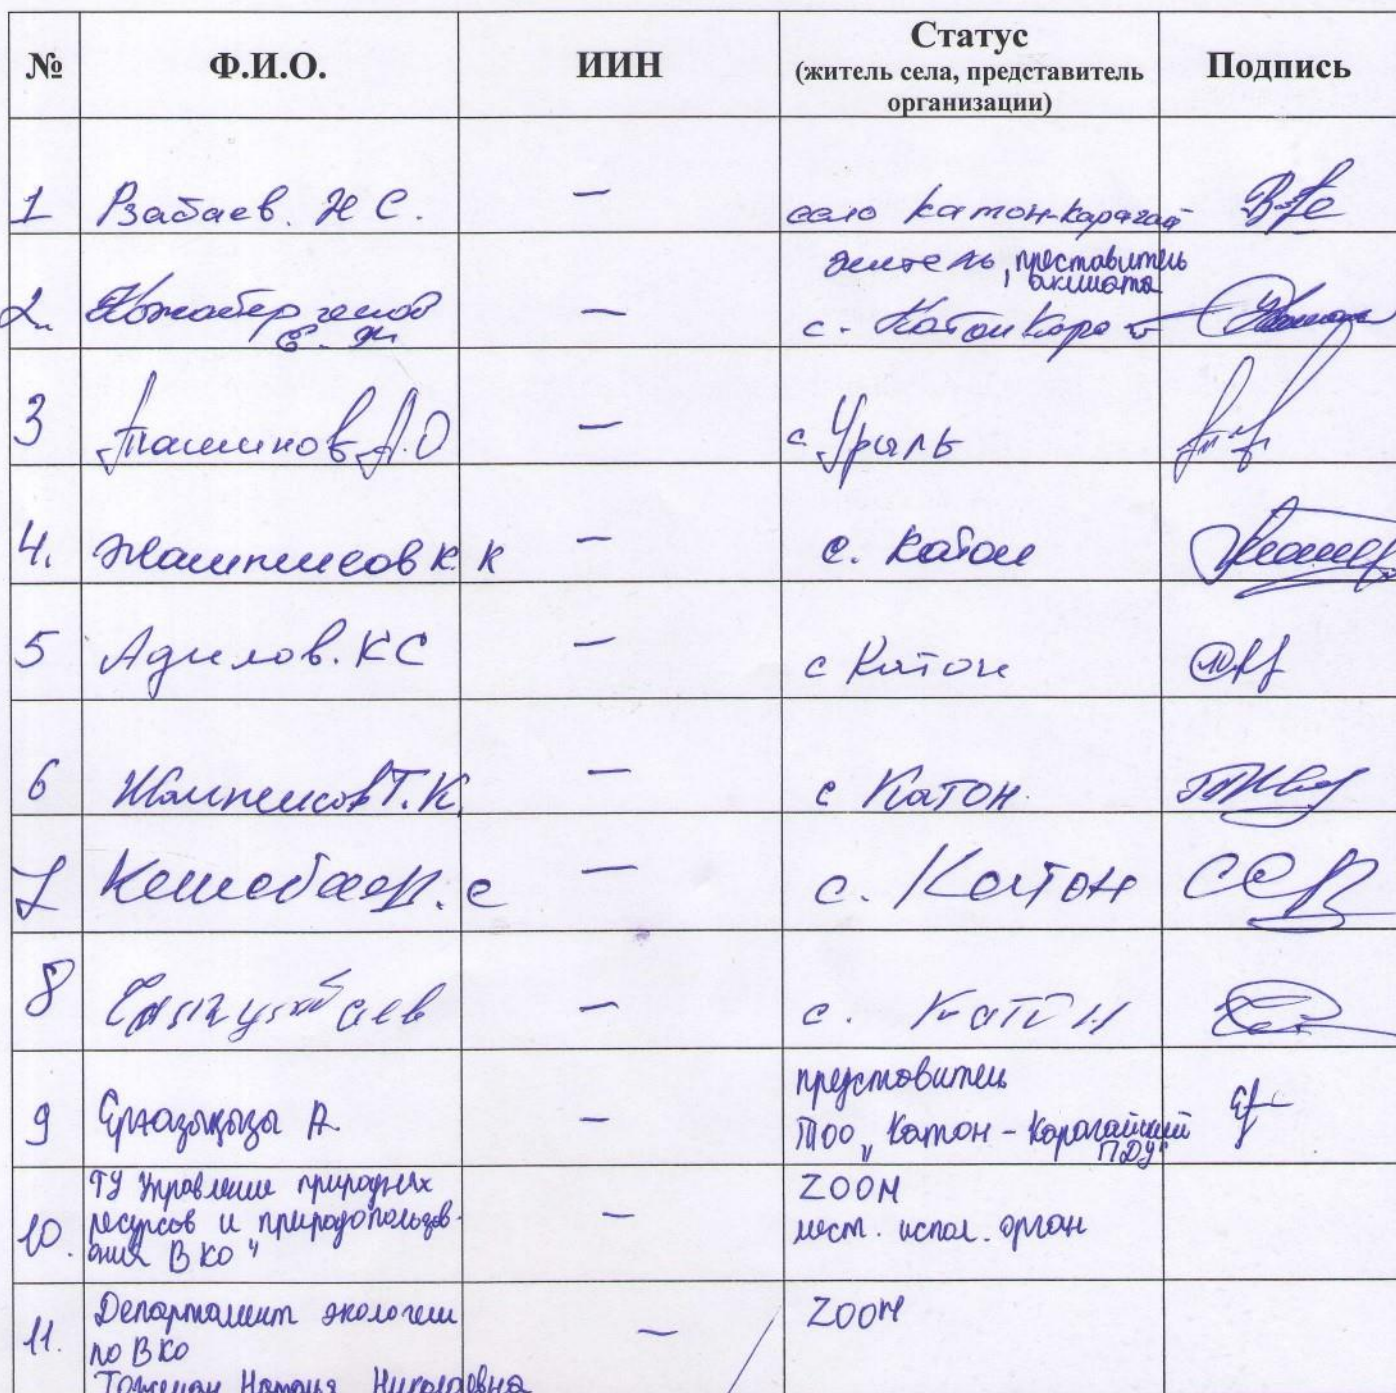 № Ф.И.О. ИИН Статус Подпись
(житель села, представитель
организации)
1 Рзабаев. Н С. — село Катон-Карагай
2. Кожабергенов — житель, преставитель
акимата
Е. Ж с. Катон Кара
3 Ташинов А.О — с. Урыль
4. Жампеисов К. К — с. Катон
5 Адилов. КС — с Катон
6 Жампеисов Т.К. — с Катон
7 с — с. Катон
8 — с. Катон
9 Ерғазықызы А. — представитель
ТОО „Катон-Карагайский
ПДУ"
10. ГУ Управление природных — ZOOM
ресурсов и природопользов- мест. испол. орган
ания ВКО"
11. Департамент экологии — ZOOM
по ВКО
Наталья Николаевна